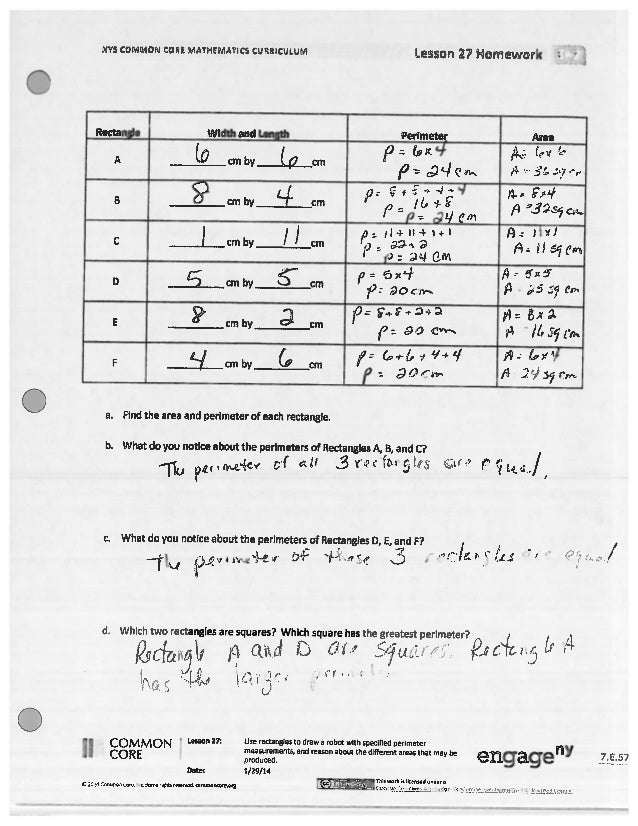 NYS COMMON CORE MATHEMATICS CURRICULUM
Lesson 27 Homework
Rectangle Width and Length Perimeter Area
A 6 cm by 6 cm P = 6x4 A = 6x6
P = 24 cm A = 36 sq cm
B 8 cm by 4 cm P = 8+8+4+4 A = 8x4
P = 16+8 A = 32 sq cm
P = 24 cm
C 1 cm by 11 cm P = 11+11+1+1 A = 11x1
P = 22+2 A = 11 sq cm
P = 24 cm
D 5 cm by 5 cm P = 5x4 A = 5x5
P = 20 cm A = 25 sq cm
E 8 cm by 2 cm P = 8+8+2+2 A = 8x2
P = 20 cm A 16 sq cm
F 4 cm by 6 cm P = 6+6+4+4 A = 6x4
P = 20 cm A 24 sq cm
a. Find the area and perimeter of each rectangle.
b. What do you notice about the perimeters of Rectangles A, B, and C?
The perimeter of all 3 rectangles are equal.
c. What do you notice about the perimeters of Rectangles D, E, and F?
The perimeter of these 3 rectangles are equal
d. Which two rectangles are squares? Which square has the greatest perimeter?
Rectangle A and D are squares. Rectangle A
has the larger perimeter
COMMON CORE
Lesson 27:
Use rectangles to draw a robot with specified perimeter
measurements, and reason about the different areas that may be
produced.
Date: 1/29/14
engageny
7.E.57
© 2014 Common Core, Inc. Some rights reserved. commoncore.org
This work is licensed under a